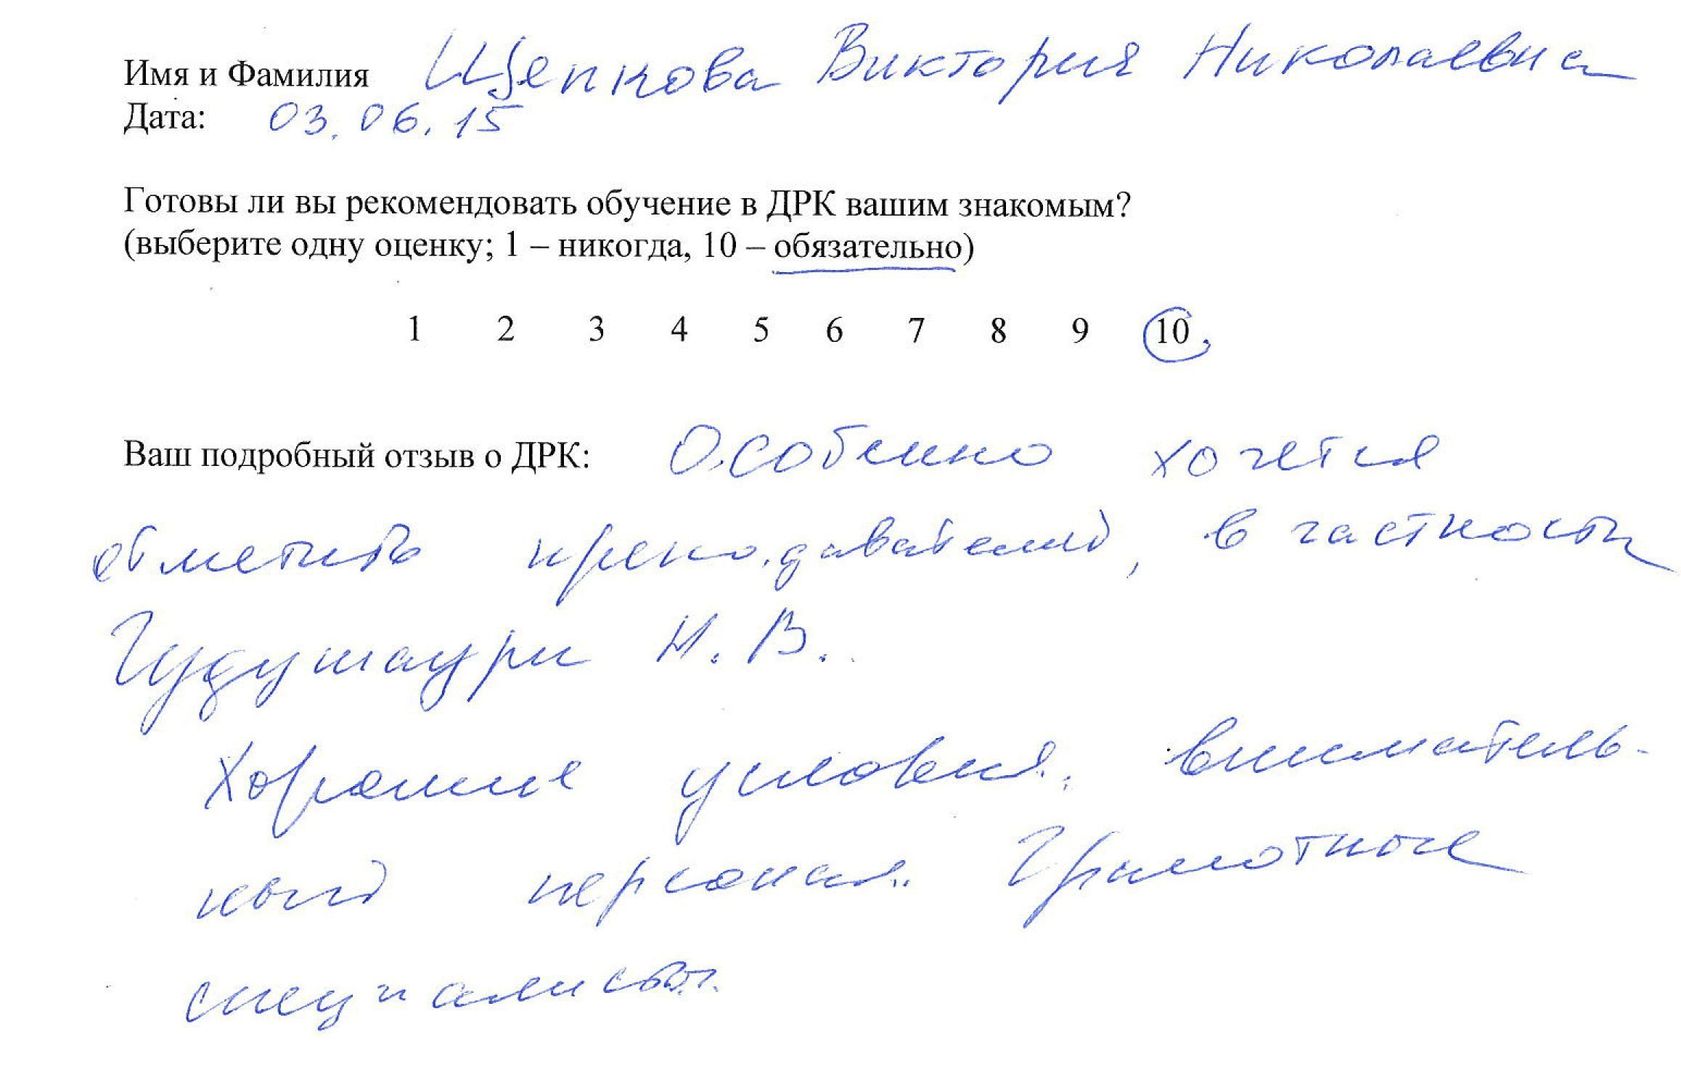 Имя и Фамилия Щепкова Виктория Николаевна
Дата: 03.06.15
Готовы ли вы рекомендовать обучение в ДРК вашим знакомым?
(выберите одну оценку; 1 – никогда, 10 – обязательно)
1 2 3 4 5 6 7 8 9 10
Ваш подробный отзыв о ДРК: Особенно хочется
отметить преподавателей, в частности
Гудушаури Н. В.
Хорошие условия. вниматель-
ный персонал. Грамотные
специалисты.